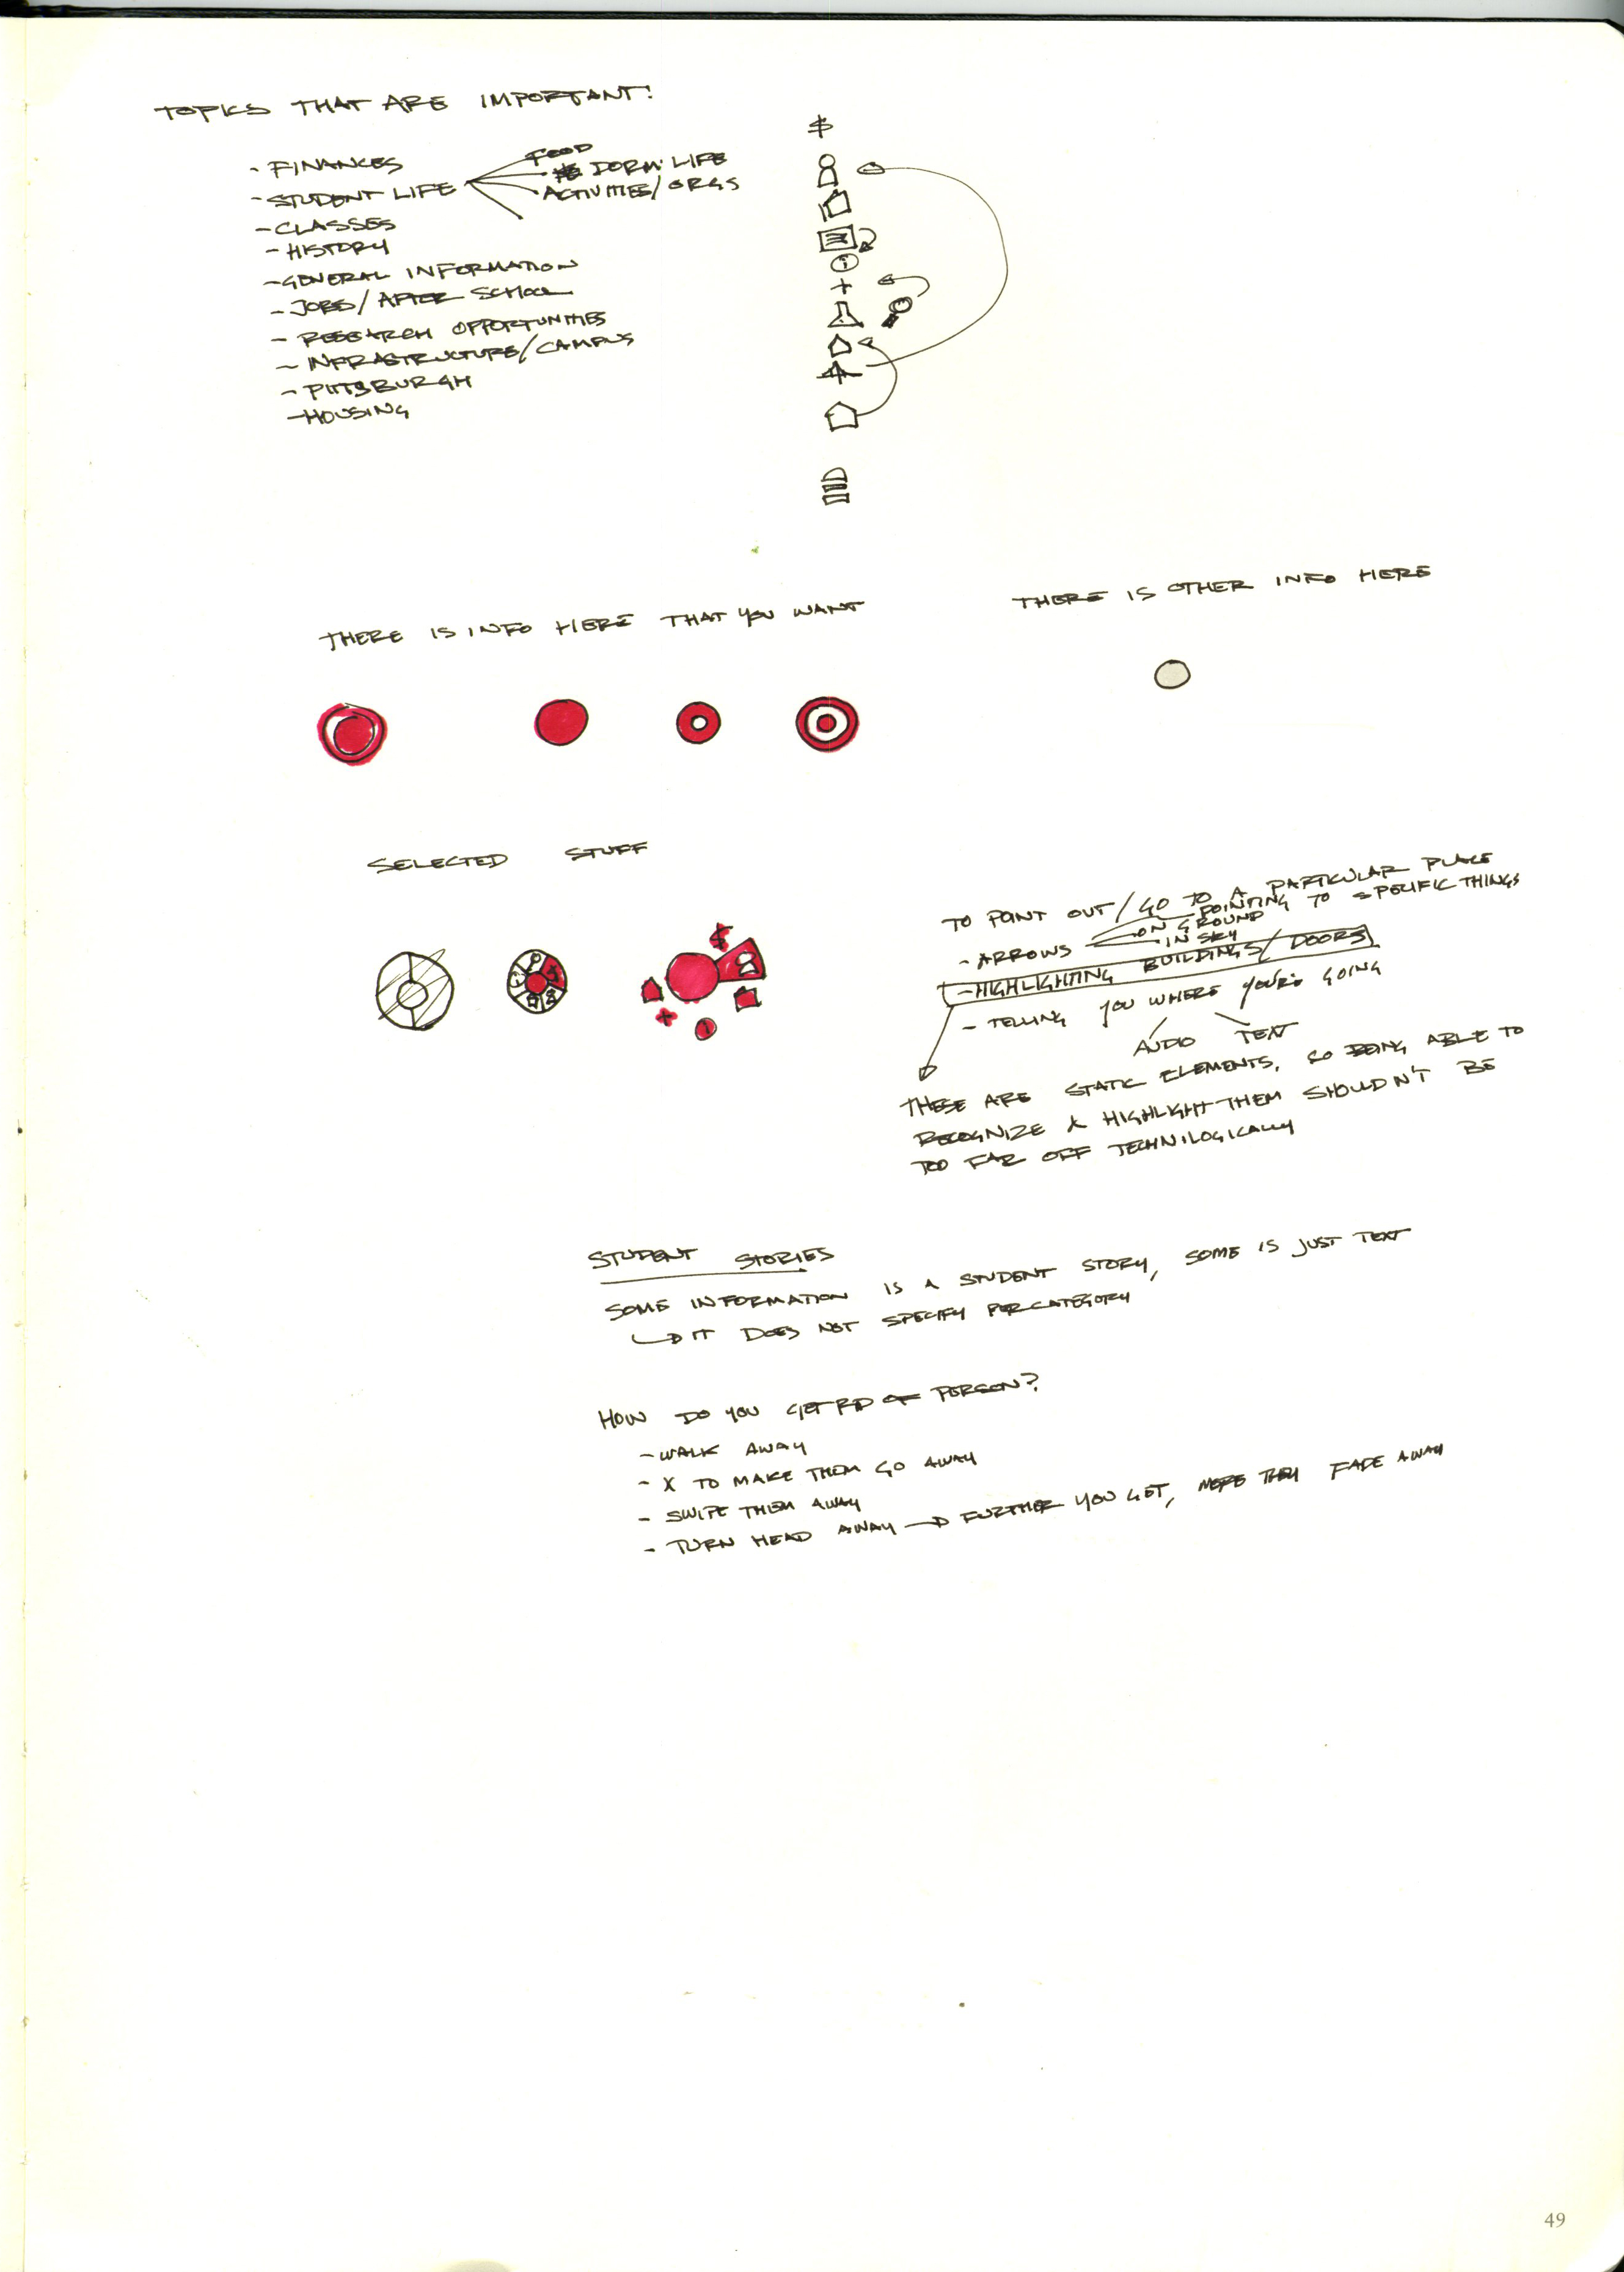 TOPICS THAT ARE IMPORTANT!
- FINANCES
- STUDENT LIFE
FOOD
DORM LIFE
ACTIVITIES/ORGS
- CLASSES
- HISTORY
- GENERAL INFORMATION
- JOBS/AFTER SCHOOL
- RESEARCH OPPORTUNITIES
- INFRASTRUCTURE/CAMPUS
- PITTSBURGH
- HOUSING
$
i
+
THERE IS INFO HERE THAT YOU WANT
THERE IS OTHER INFO HERE
SELECTED STUFF
$
+
TO POINT OUT/GO TO A PARTICULAR PLACE
- ARROWS
POINTING TO SPECIFIC THINGS
ON GROUND
IN SKY
- HIGHLIGHTING BUILDINGS/DOORS
- TELLING YOU WHERE YOU'RE GOING
AUDIO TEXT
THESE ARE STATIC ELEMENTS, SO BEING ABLE TO
RECOGNIZE & HIGHLIGHT THEM SHOULDN'T BE
TOO FAR OFF TECHNILOGICALLY
STUDENT STORIES
SOME INFORMATION IS A STUDENT STORY, SOME IS JUST TEXT
IT DOES NOT SPECIFY PER CATEGORY
HOW DO YOU GET RID OF PERSON?
- WALK AWAY
- X TO MAKE THEM GO AWAY
- SWIPE THEM AWAY
- TURN HEAD AWAY → FURTHER YOU GET, MORE THEY FADE AWAY
49